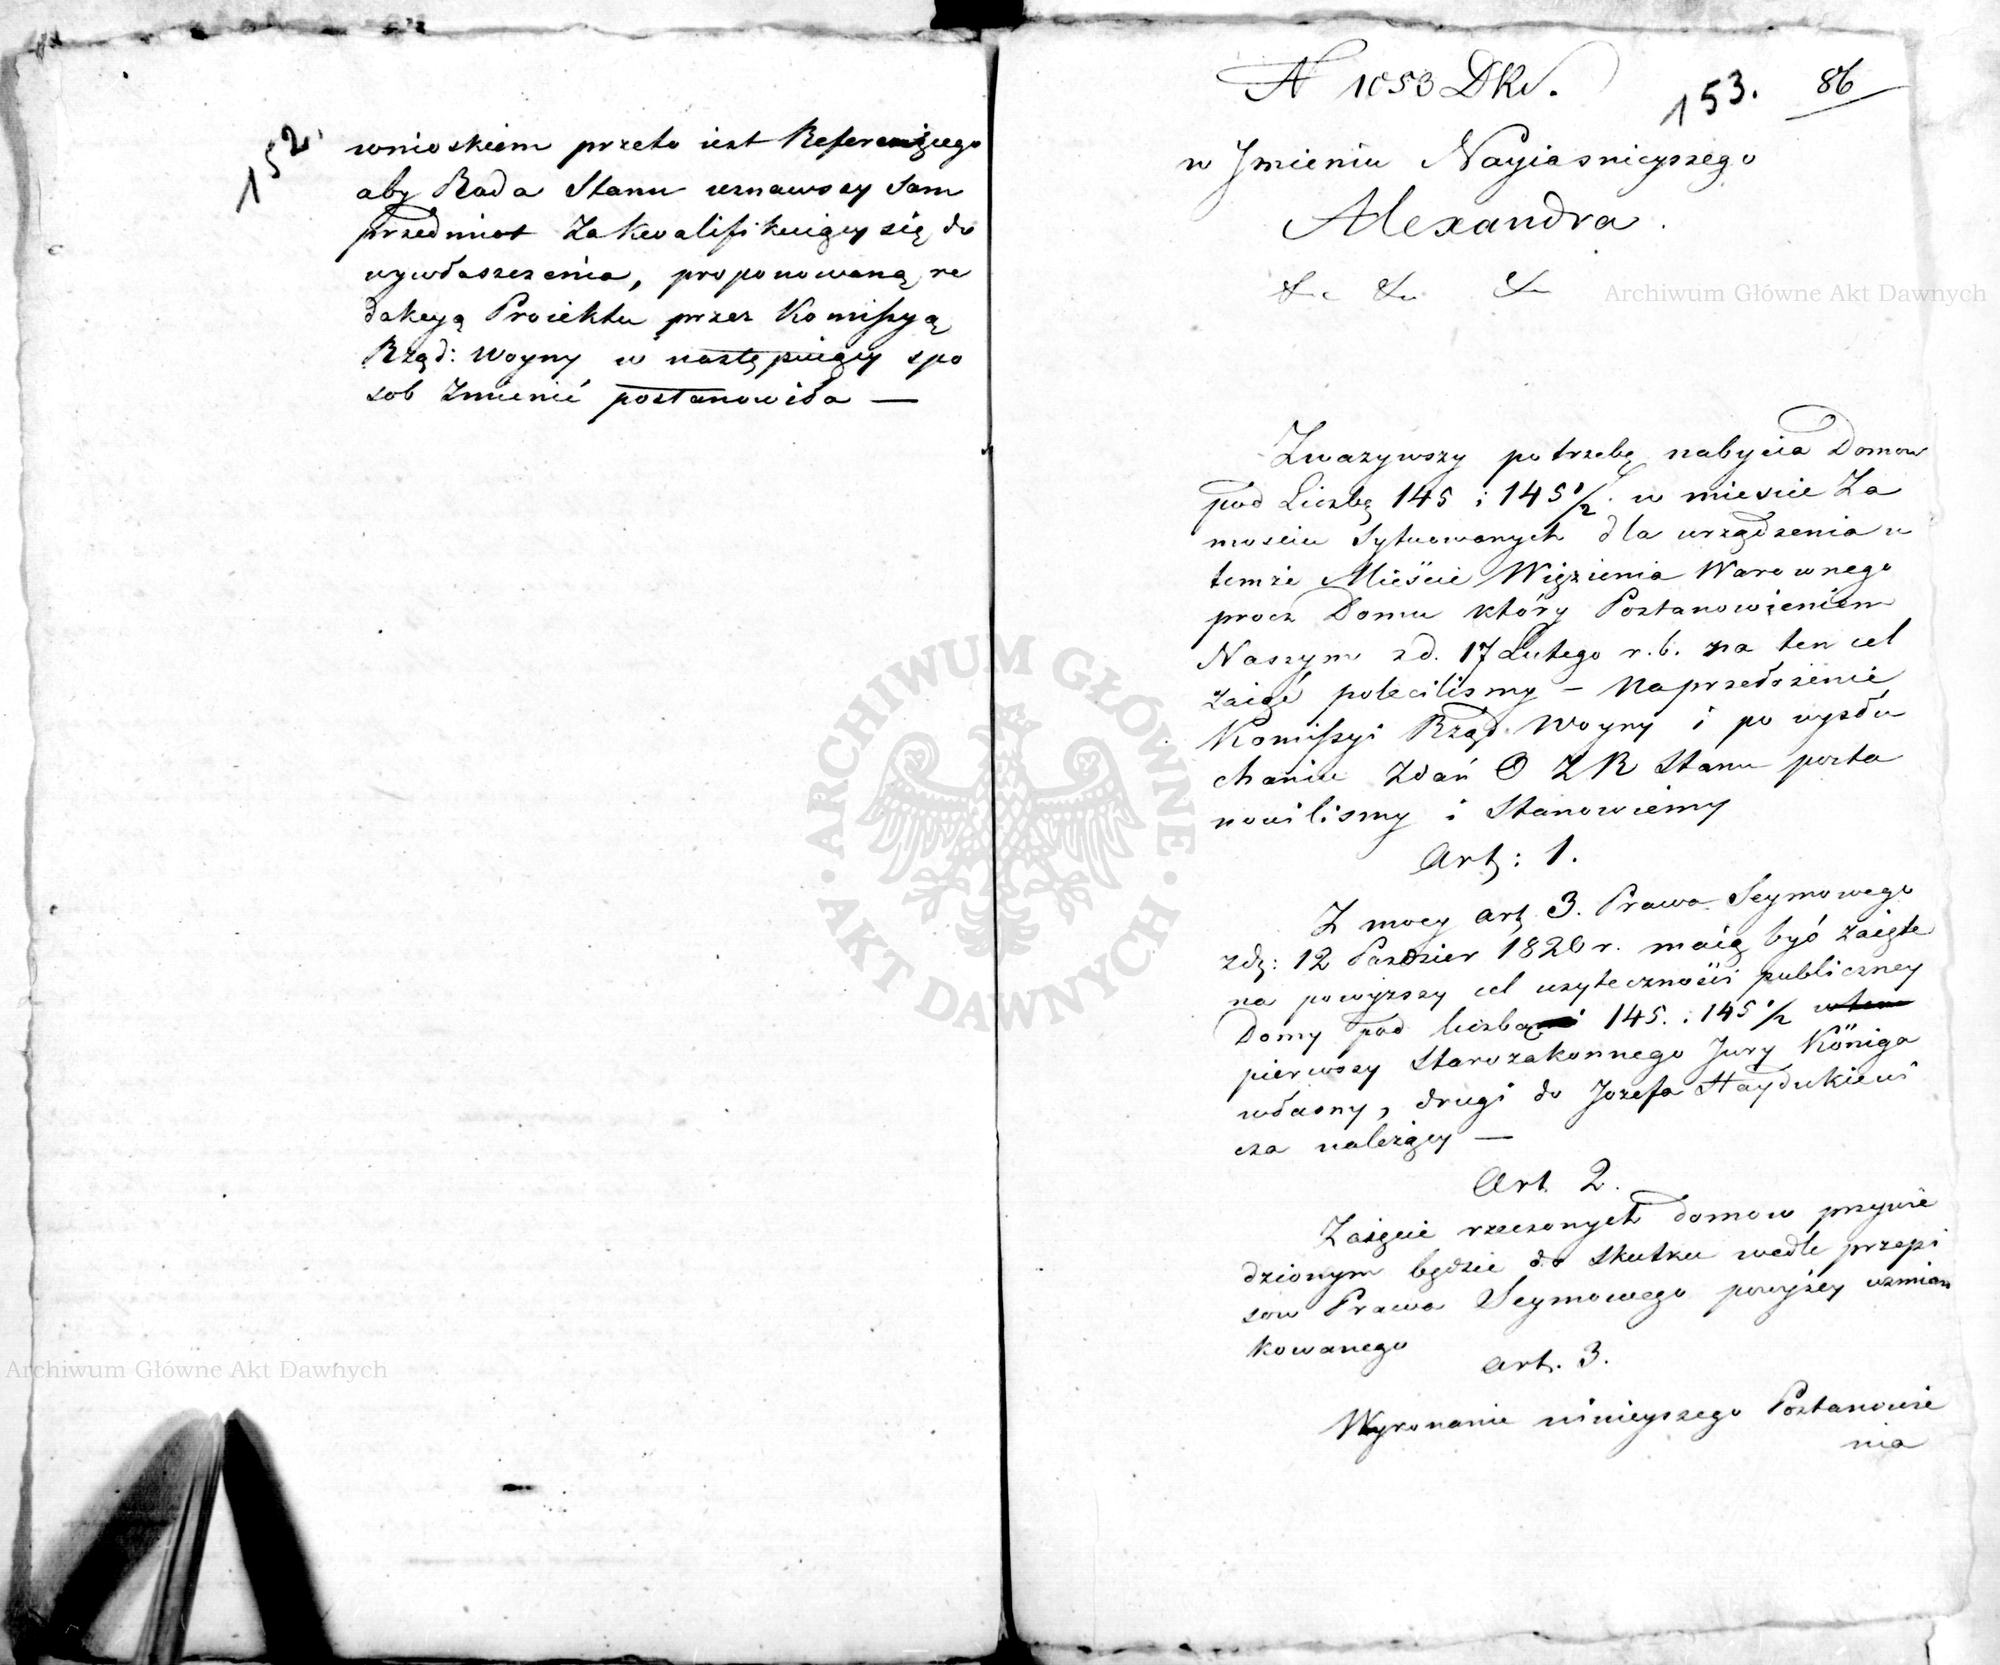 152.
wnioskiem przeto iest Referuiącego
aby Rada Stanu uznawszy sam
przedmiot zakwalifikuiący się do
wywłaszczenia, proponowaną re
dakcyą Proiektu przez Kommissyą
Rząd: Woyny w następuiący spo
sob zmienić postanowiła —
N 1053 DKr.
153.
86
w Jmieniu Nayiasnieyszego
Alexandra.
&c &c &c
Zwazywszy potrzebę nabycia Domow
pod Liczbą 145 i 145 1/2. w miescie Za
mosciu sytuowanych dla urządzenia w
temże Mieście Więzienia Warownego
procz Domu który Postanowieniem
Naszym z d. 17 Lutego r. b. na ten cel
zaiąć polecilismy – Na przedłożenie
Komissyi Rząd. Woyny i po wysłu
chaniu Zdań O Z R Stanu posta
nowilismy i Stanowiemy
Art: 1.
Z mocy art 3. Prawa Seymowego
z d: 12 Pazdzier 1820 r. maią być zaięte
na powyzszy cel uzyteczności publiczney
Domy pod liczbą 145. i 145 1/2
pierwszy Starozakonnego Jury Königa
własny, drugi do Jozefa Haydukiewi
cza należący —
Art 2.
Zaięcie rzeczonych domow przywie
dzionym będzie do skutku wedle przepi
sow Prawa Seymowego powyżey wzmian
kowanego
Art. 3.
Wykonanie ninieyszego Postanowie
nia
Archiwum Główne Akt Dawnych
Archiwum Główne Akt Dawnych
ARCHIWUM GŁÓWNE
AKT DAWNYCH